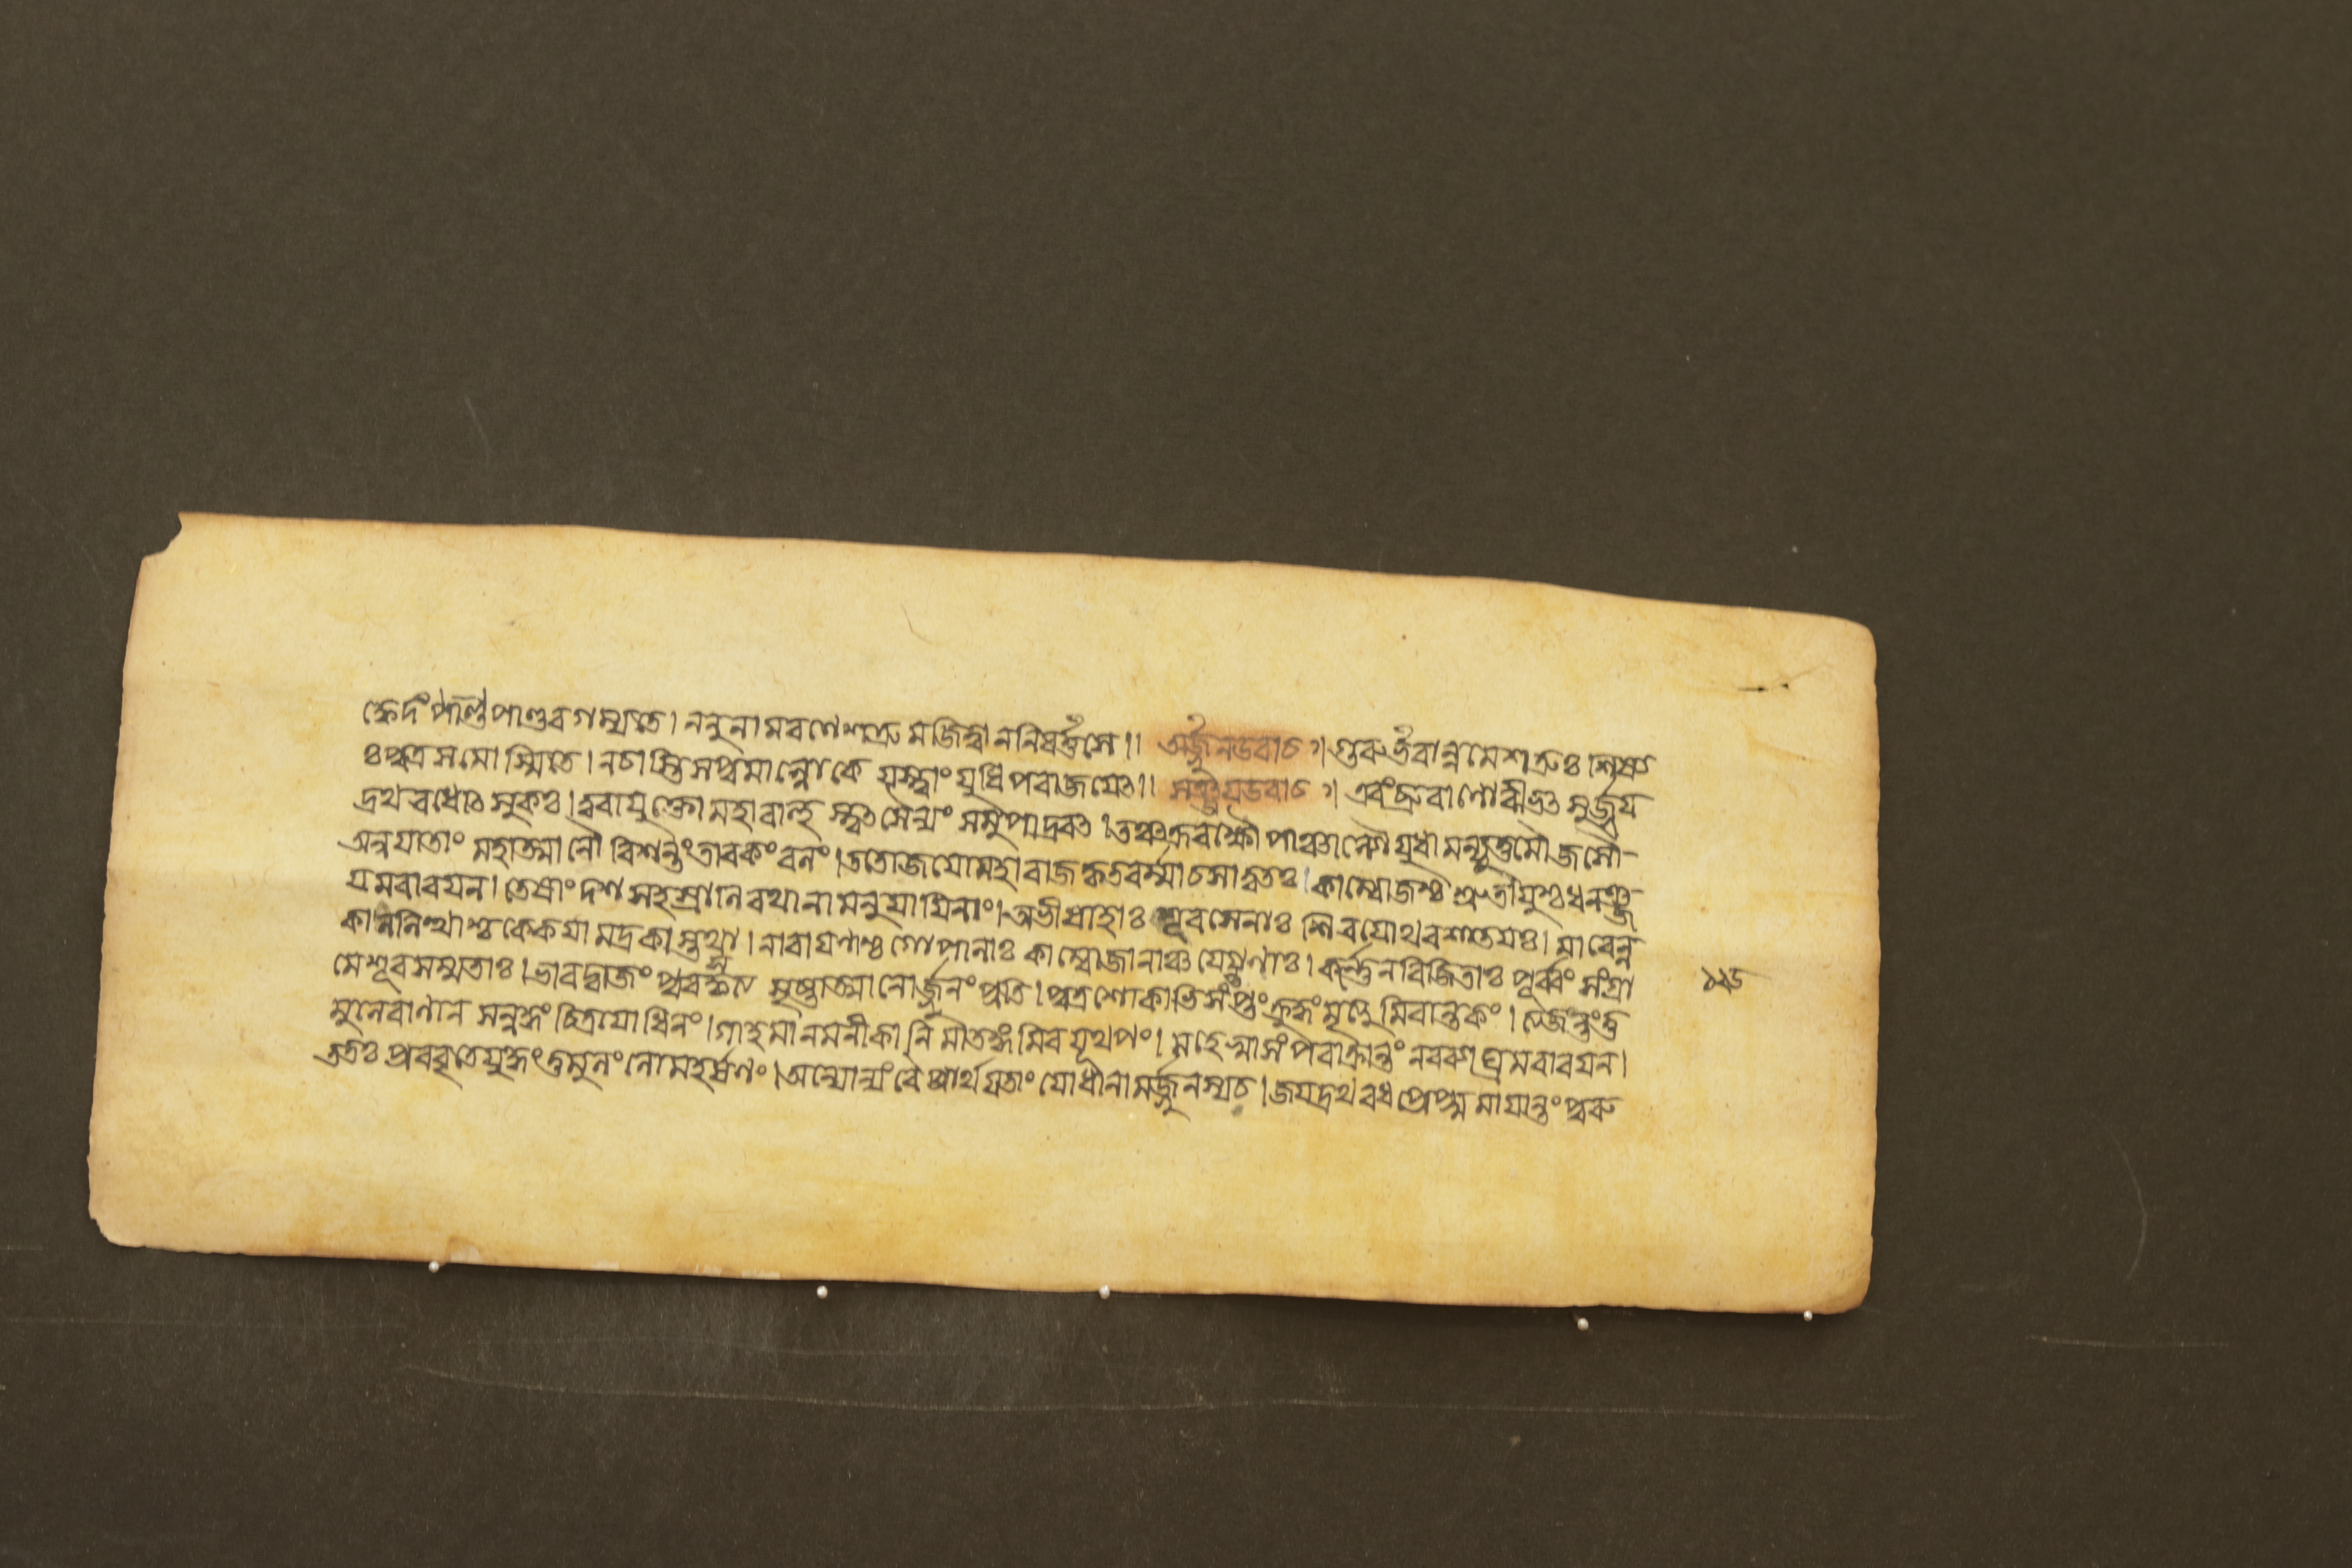 ক্বেদং পাণ্ডপাণ্ডবগম্যতে। ননুনামরণেশত্রুমজিত্বাননিবর্ত্তসে॥ অর্জ্জুনউবাচ। গুরুর্ভবান্নমেশত্রুঃ শিষ্য
ঃ পুত্রসমোস্মিতে। নচাস্তিসপুমাল্লোকে যস্ত্বাং যুধিপরাজয়েৎ॥ সঞ্জয়উবাচ। এবংব্রুবাণোবীভৎসুর্জ্জয়
দ্রথবধোৎসুকঃ। ত্বরাযুক্তোমহাবাহুস্তৎসৈন্যং সমুপাদ্রবৎ। তঞ্চক্ররক্ষৌ পাঞ্চাল্যৌ যুধামন্যূত্তমৌজসৌ-
অন্বয়াতাং মহাত্মানৌ বিশন্তংতাবকংবলং। ততোজয়োমহারাজকৃতবর্ম্মাচসাত্বতঃ। কাম্বোজশ্চ শ্রুতায়ুশ্চধনঞ্জ-
য়মবারয়ন। তেষাং দশ সহস্রানি রথানামনুয়ায়িনাং। অভীষাহাঃ শূরসেনাঃ শিবয়োথবশাতয়ঃ। মাবেল্ল
কাললিত্থাশ্চকেকয়ামদ্রকাস্তথা। নারায়ণাশ্চগোপালাঃ কাম্বোজানাঞ্চয়েগণাঃ। কর্ণ্ণেনবিজিতাঃ পূর্ব্বং সংগ্রা
মেশূরসম্মতাঃ। ভারদ্বাজং পুরস্কৃত্য ত্যক্তাত্মানোর্জ্জুনং প্রতি। পুত্রশোকাভিসংতপ্তং ক্রুদ্ধং মৃত্যুমিবান্তকং। ত্যজন্তংতু
মুলেপ্রাণান সন্নদ্ধং চিত্রয়োধিনং। গাহমানমনীকানি মাতঙ্গমিবয়ূথপং। মহেষ্বাসং পরাক্রান্তং নরব্যাঘ্রমবারয়ন।
ততঃ প্রববৃতেয়ুদ্ধং তুমুলং লোমহর্ষণং। অন্যোন্যংবৈ প্রার্থয়তাং য়োধানামর্জ্জুনস্যচ। জয়দ্রথবধপ্রেপ্সুমায়ান্তং পুরু